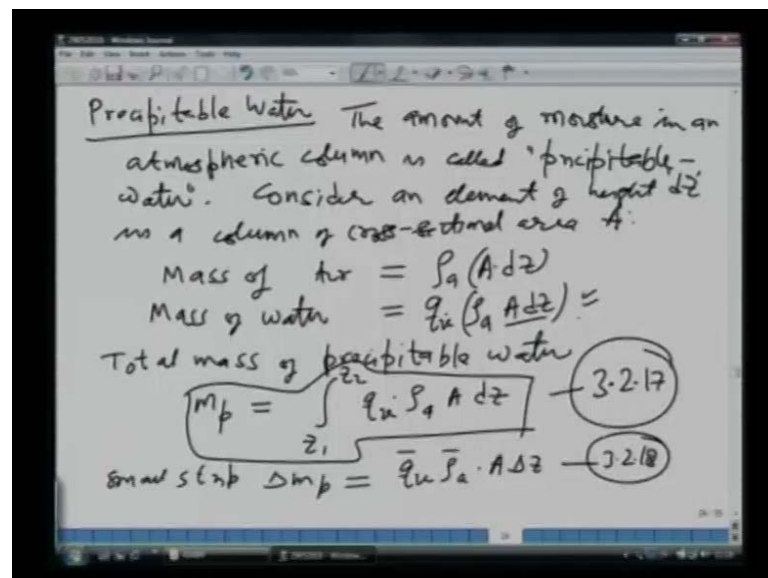 Precipitable Water The amount of moisture in an
atmospheric column is called 'precipitable-
water'. Consider an element of height dz
in a column of cross-sectional area A:
Mass of Air = ρa (A dz)
Mass of water = qv (ρa A dz) =
Total mass of precipitable water
mp = ∫ z1 z2 qv ρa A dz — 3.2.17
small strip Δmp = q̄v ρ̄a · A Δz — 3.2.18